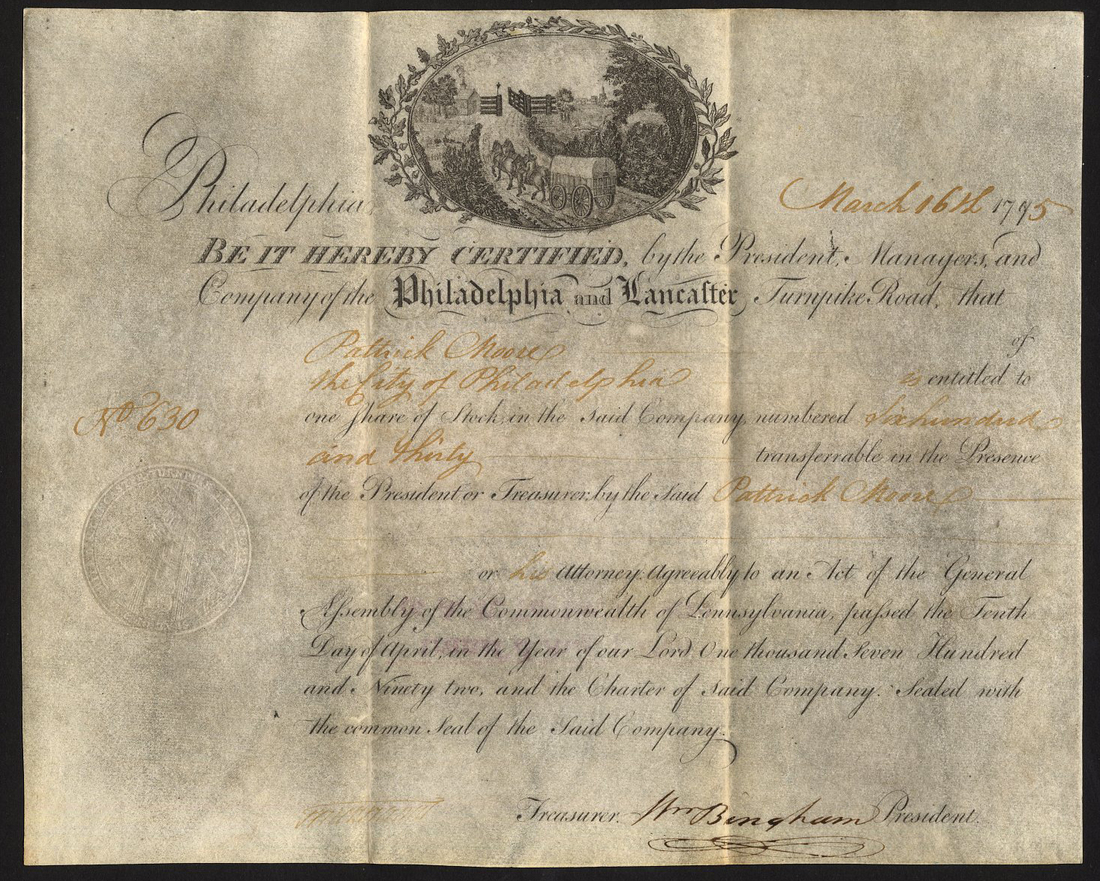 Philadelphia, March 16th 1795
BE IT HEREBY CERTIFIED, by the President, Managers, and
Company of the Philadelphia and Lancaster Turnpike Road, that
Pattrick Moore of
the City of Philadelphia is entitled to
No 630
one Share of Stock, in the said Company, numbered Six hundred
and thirty transferrable in the Presence
of the President or Treasurer, by the said Pattrick Moore
or his Attorney. Agreeably to an Act of the General
Assembly of the Commonwealth of Pennsylvania, passed the Tenth
Day of April, in the Year of our Lord, One thousand Seven Hundred
and Ninety two, and the Charter of said Company. Sealed with
the common Seal of the Said Company.
Treasurer. Wm Bingham President.